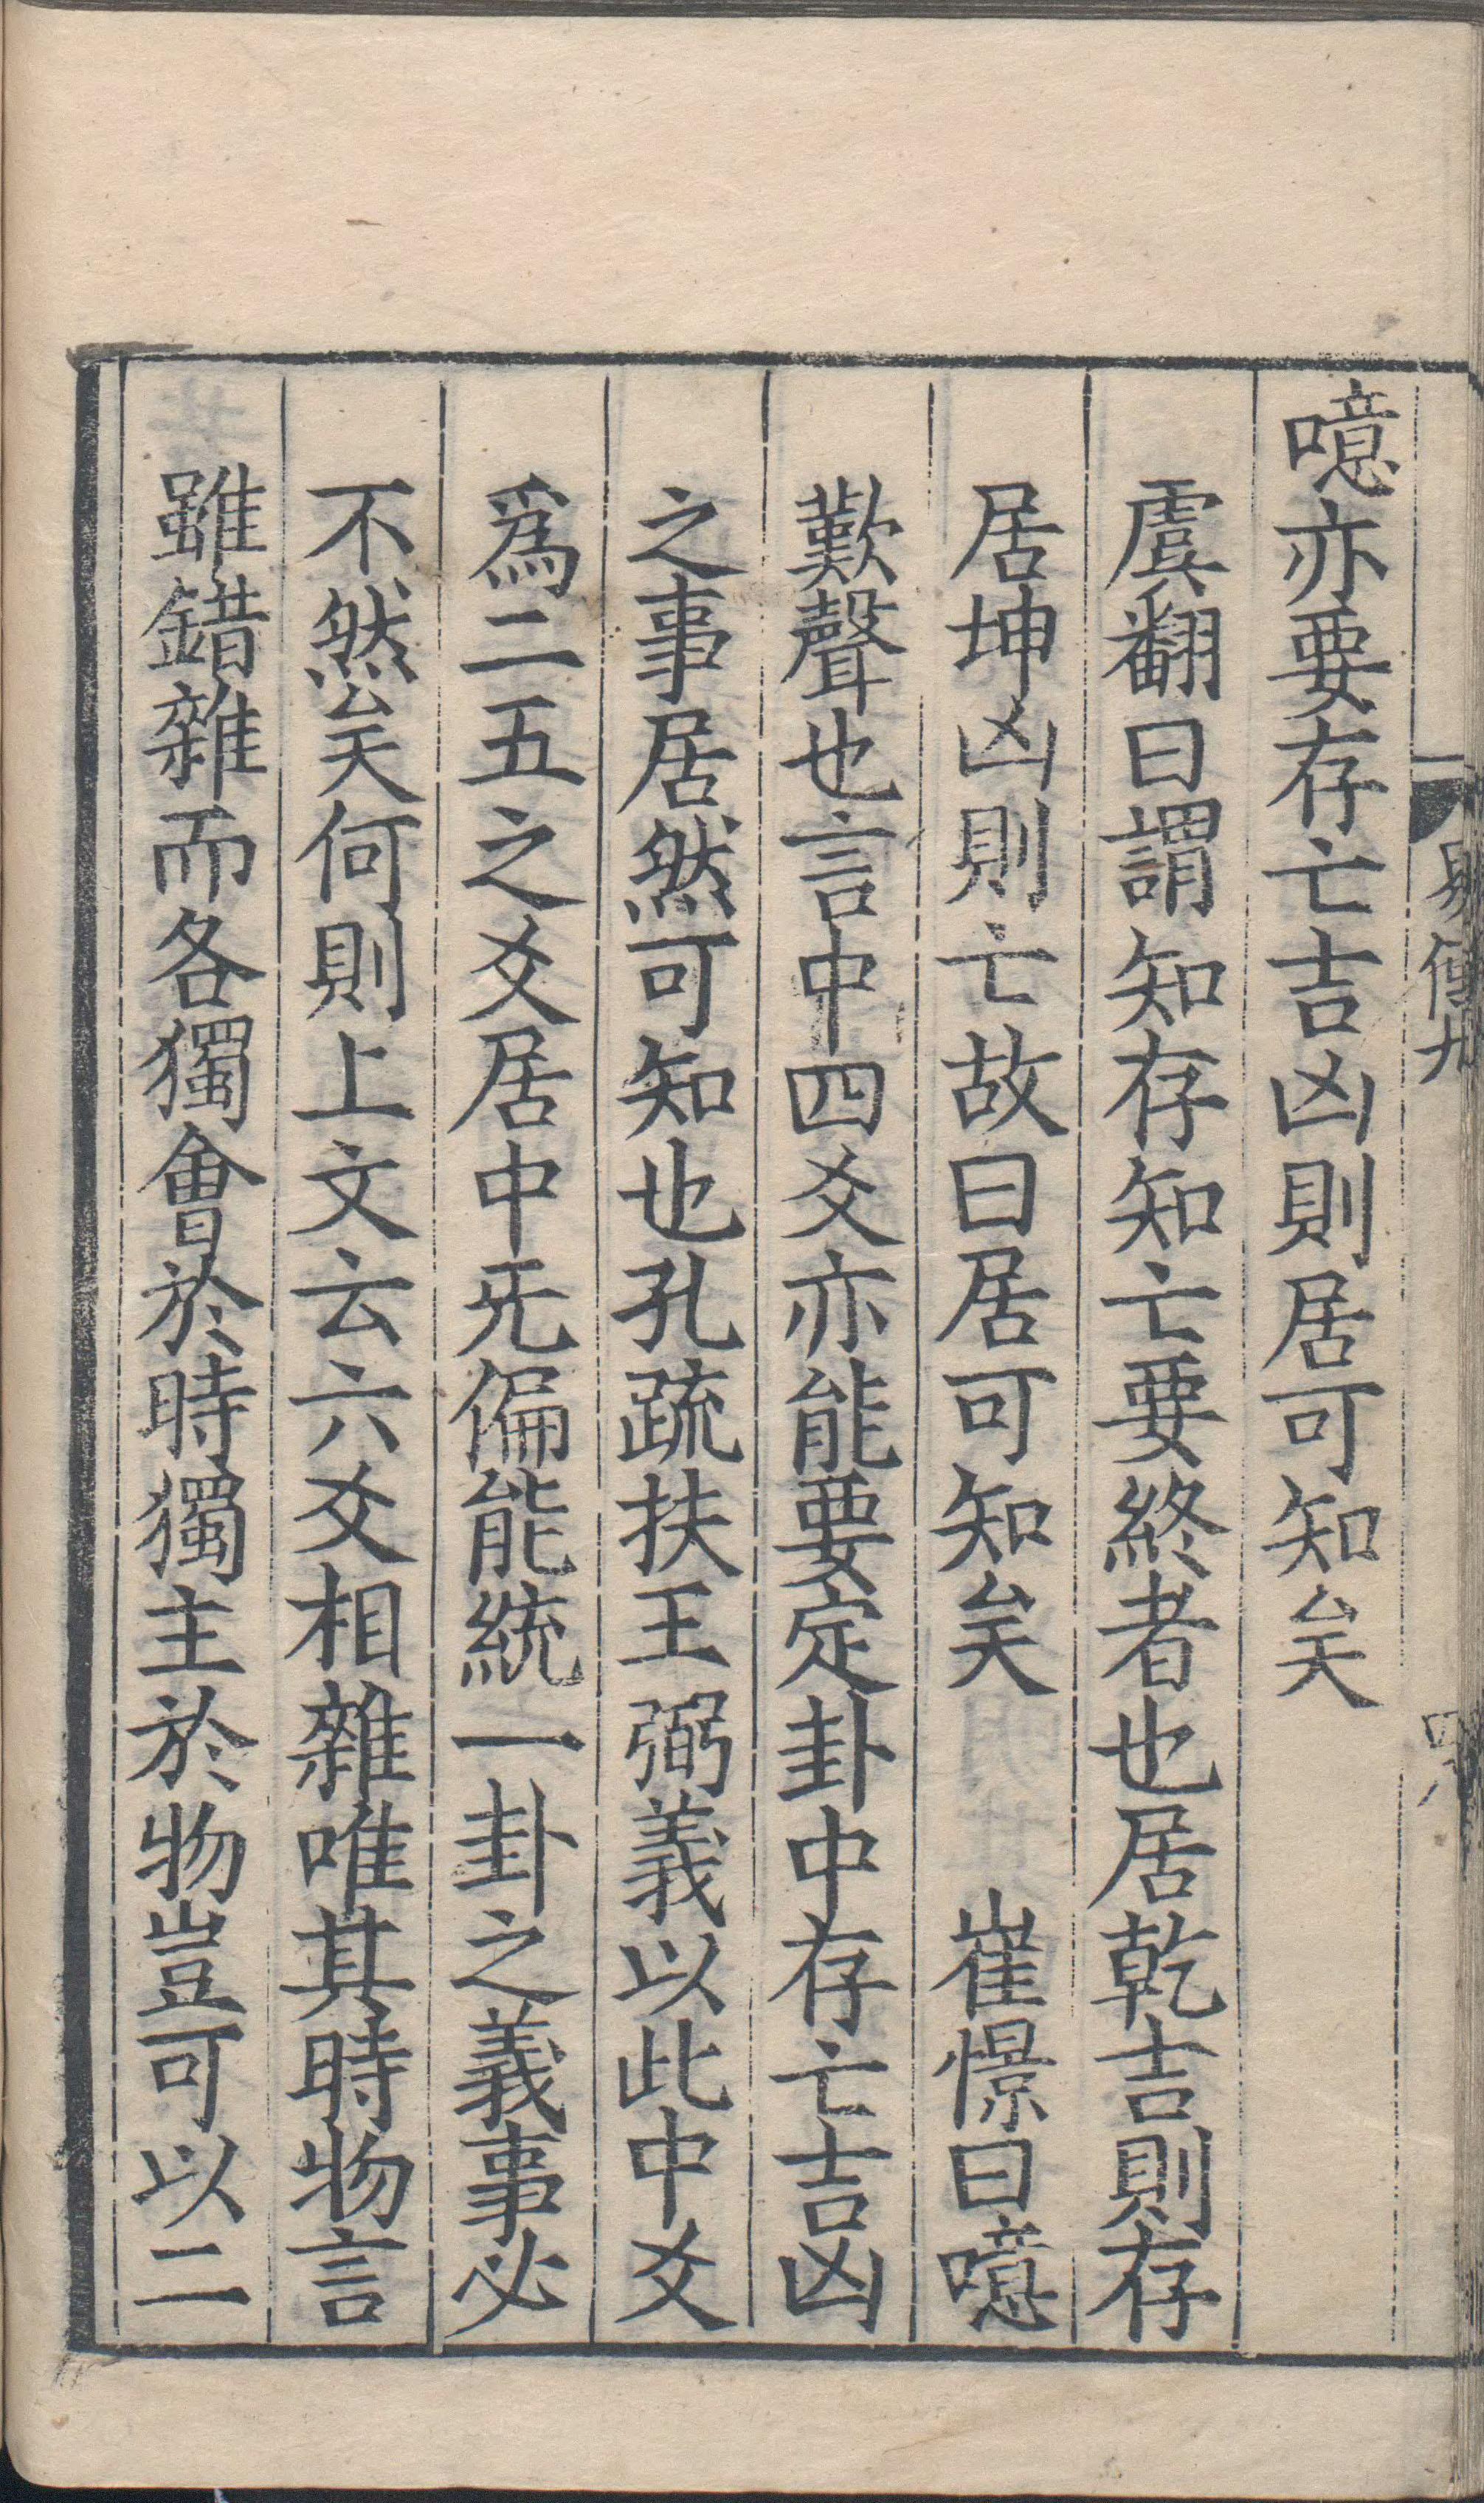 噫亦要存亡吉凶則居可知矣
虞翻曰謂知存知亡要終者也居乾吉則存
居坤凶則亡故曰居可知矣　崔憬曰噫
歎聲也言中四爻亦能要定卦中存亡吉凶
之事居然可知也孔疏扶王弼義以此中爻
爲二五之爻居中无偏能統一卦之義事必
不然矣何則上文云六爻相雜唯其時物言
雖錯雜而各獨會於時獨主於物豈可以二
易傳九